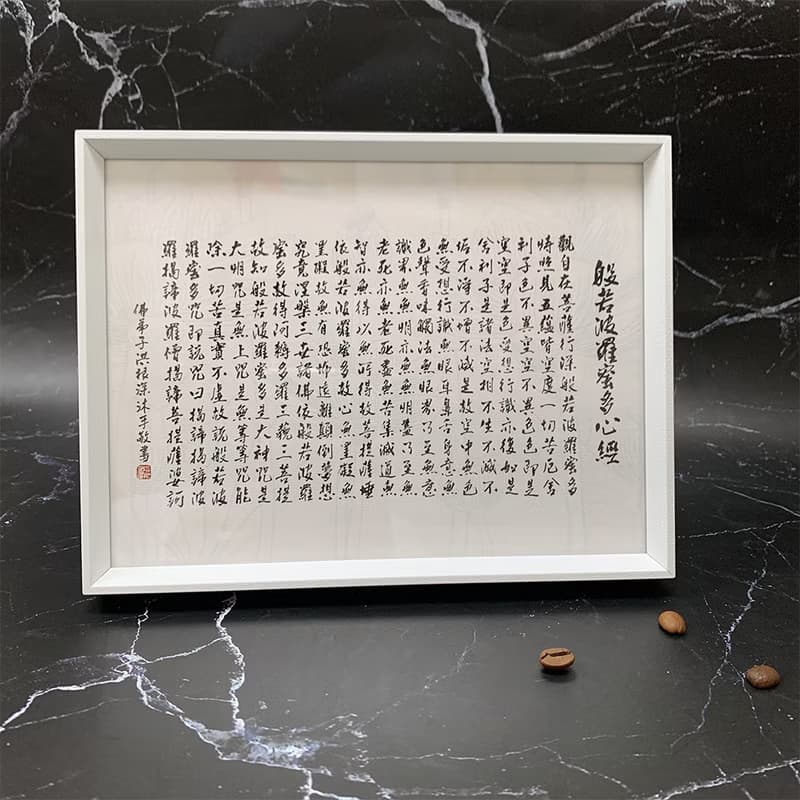 般若波羅蜜多心經
觀自在菩薩行深般若波羅蜜多
時照見五蘊皆空度一切苦厄舍
利子色不異空空不異色色即是
空空即是色受想行識亦復如是
舍利子是諸法空相不生不滅不
垢不淨不增不減是故空中無色
無受想行識無眼耳鼻舌身意無
色聲香味觸法無眼界乃至無意
識界無無明亦無無明盡乃至無
老死亦無老死盡無苦集滅道無
智亦無得以無所得故菩提薩埵
依般若波羅蜜多故心無罣礙無
罣礙故無有恐怖遠離顛倒夢想
究竟涅槃三世諸佛依般若波羅
蜜多故得阿耨多羅三藐三菩提
故知般若波羅蜜多是大神咒是
大明咒是無上咒是無等等咒能
除一切苦真實不虛故說般若波
羅蜜多咒即說咒曰揭諦揭諦波
羅揭諦波羅僧揭諦菩提薩婆訶
佛弟子洪根深沐手敬書